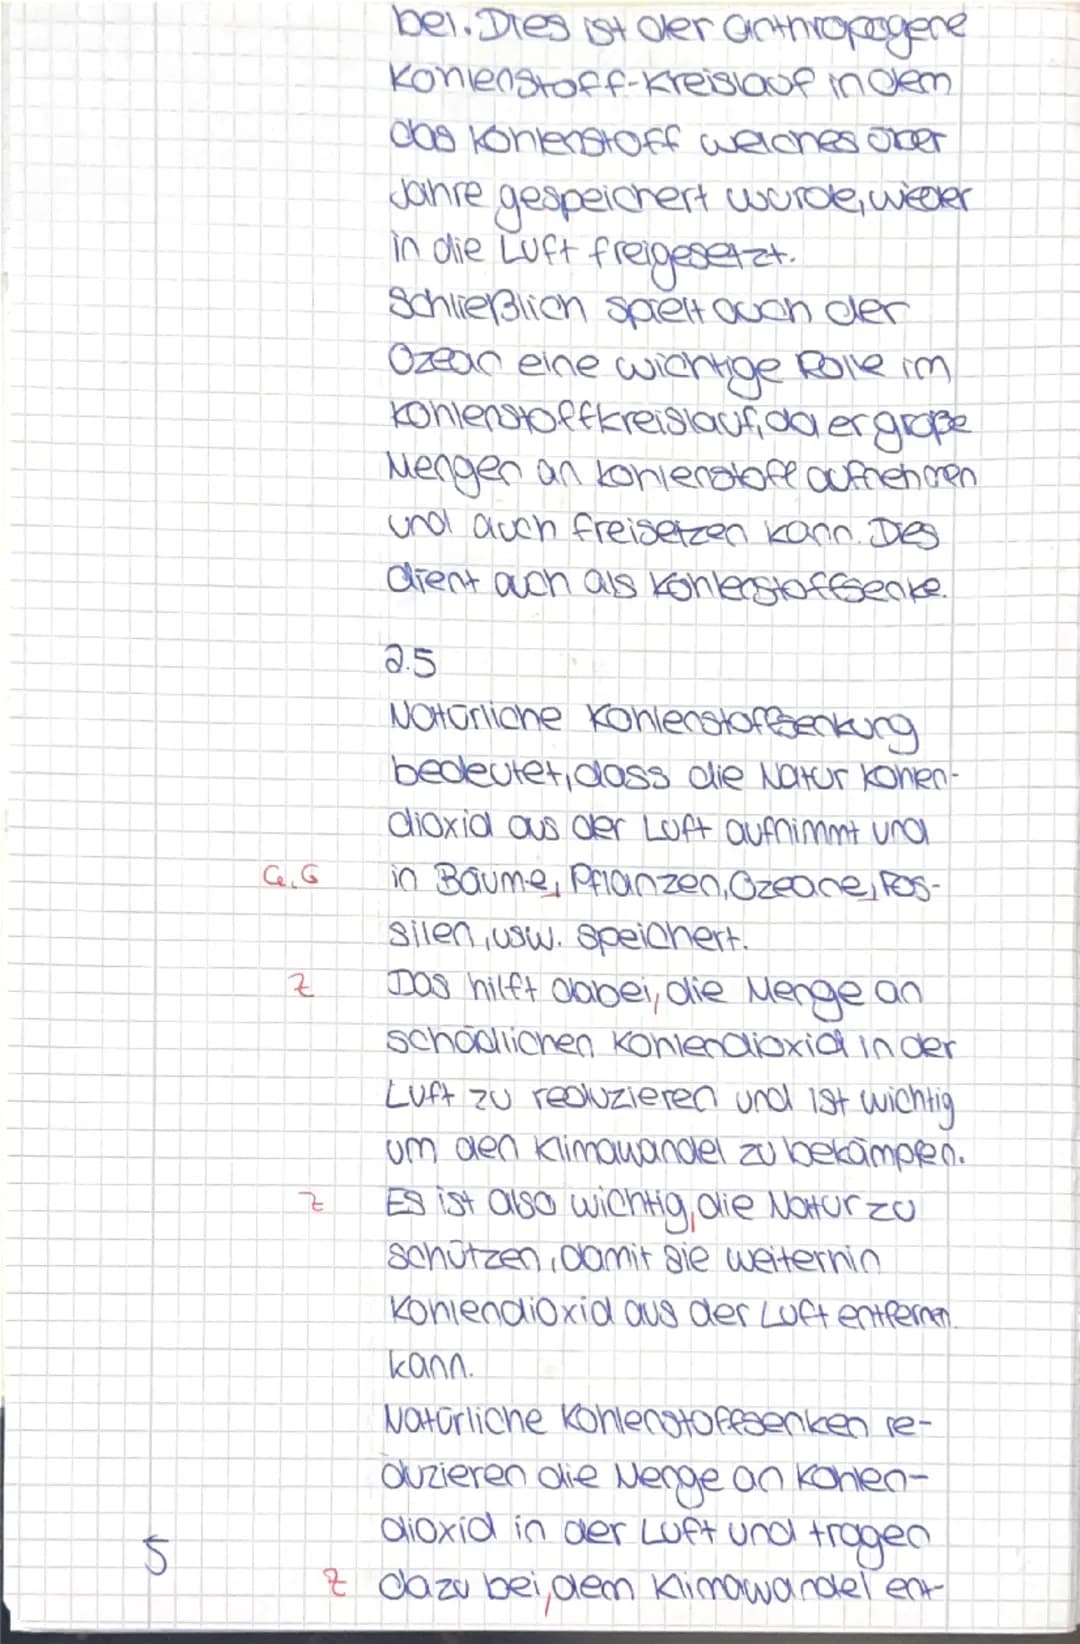 bei. Dies ist der anthropogene
Kohlenstoff-Kreislauf in dem
das Kohlenstoff welches über
Jahre gespeichert wurde, wieder
in die Luft freigesetzt.
Schließlich spielt auch der
Ozean eine wichtige Rolle im
Kohlenstoffkreislauf, da er große
Mengen an Kohlenstoff aufnehmen
und auch freisetzen kann. Dies
dient auch als Kohlenstoffsenke.
2.5
Natürliche Kohlenstoffsenkung
bedeutet, dass die Natur Kohlen-
dioxid aus der Luft aufnimmt und
G, G in Bäume, Pflanzen, Ozeane, Fos-
silen, usw. speichert.
Z Das hilft dabei, die Menge an
schädlichen Kohlendioxid in der
Luft zu reduzieren und ist wichtig
um den Klimawandel zu bekämpfen.
Z Es ist also wichtig, die Natur zu
schützen, damit sie weiterhin
Kohlendioxid aus der Luft entfernen
kann.
Natürliche Kohlenstoffsenken re-
duzieren die Menge an Kohlen-
dioxid in der Luft und tragen
5
Z dazu bei, dem Klimawandel ent-